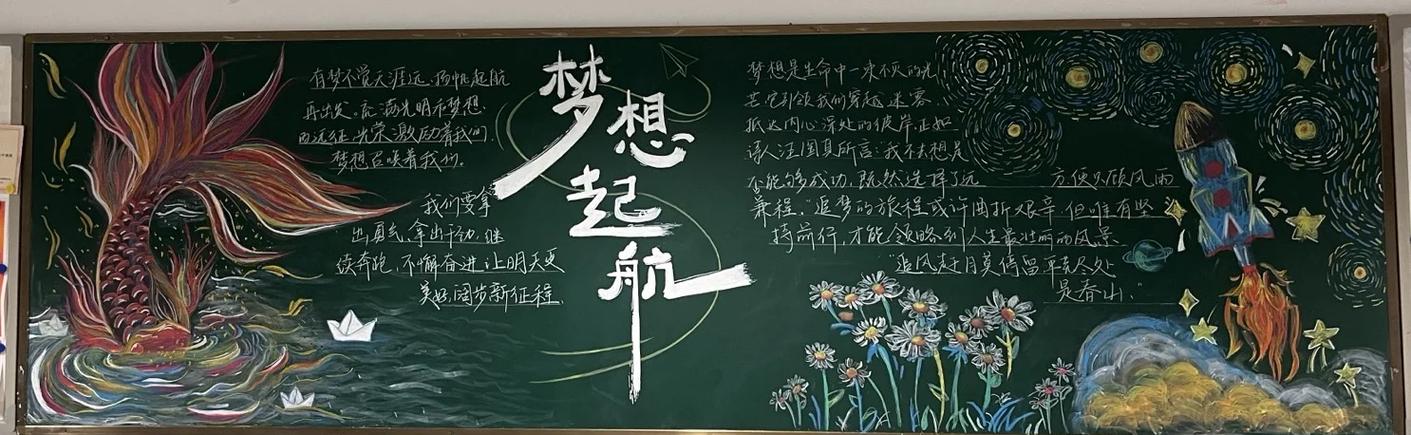 梦想起航
有梦不觉天涯远、扬帆起航
再出发。充满光明和梦想
的远征，光荣激励着我们，
梦想召唤着我们。
我们要拿
出勇气，拿出干劲，继
续奔跑，不懈奋进，让明天更
美好，阔步新征程。
梦想是生命中一束不灭的光
芒，它引领我们穿越迷雾，
抵达内心深处的彼岸。正如
诗人汪国真所言：我不去想是
否能够成功，既然选择了远方便只顾风雨
兼程。"追梦的旅程或许曲折艰辛，但唯有坚
持前行，才能领略到人生最壮丽的风景。
"追风赶月莫停留，平芜尽处
是春山。"